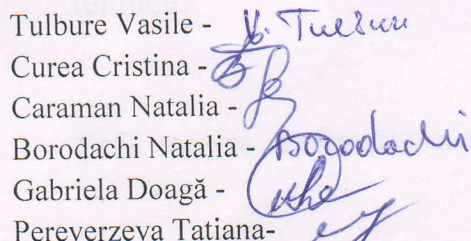 Tulbure Vasile - V. Tulbure
Curea Cristina -
Caraman Natalia -
Borodachi Natalia - Borodachi
Gabriela Doagă -
Pereverzeva Tatiana-